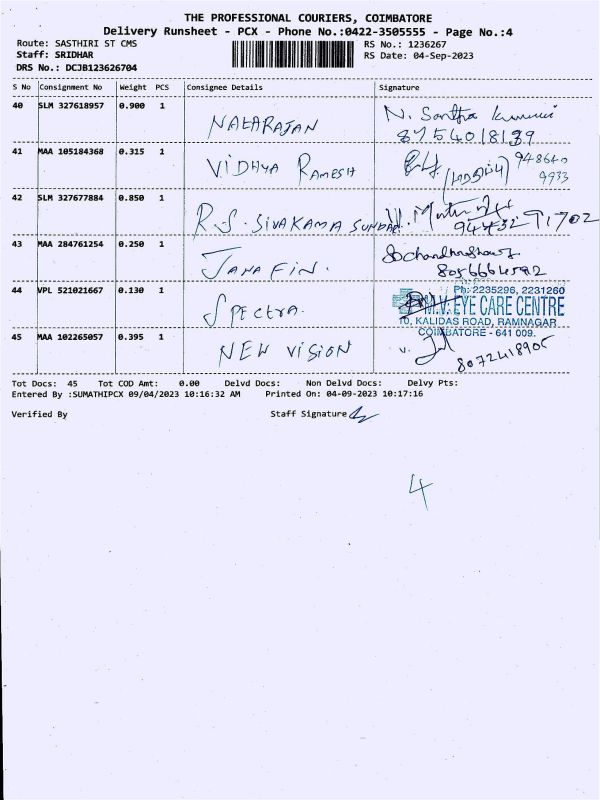 THE PROFESSIONAL COURIERS, COIMBATORE
Delivery Runsheet - PCX - Phone No.:0422-3505555 - Page No.:4
Route: SASTHIRI ST CMS RS No.: 1236267
Staff: SRIDHAR RS Date: 04-Sep-2023
DRS No.: DCJB123626704
S No Consignment No Weight PCS Consignee Details Signature
40 SLM 327618957 0.900 1 NATARAJAN N. Santha Kumari
8754018139
41 MAA 105184368 0.315 1 VIDHYA RAMESH 948640
9933
42 SLM 327677884 0.850 1 R.S. SIVAKAMA SUNDARI
9443291702
43 MAA 284761254 0.250 1 JANA FIN.
44 VPL 521021667 0.130 1 SPECTRA. Ph: 2235296, 2231260
M.V. EYE CARE CENTRE
10, KALIDAS ROAD, RAMNAGAR
COIMBATORE - 641 009.
45 MAA 102265057 0.395 1 NEW VISION
8072418905
Tot Docs: 45 Tot COD Amt: 0.00 Delvd Docs: Non Delvd Docs: Delvy Pts:
Entered By :SUMATHIPCX 09/04/2023 10:16:32 AM Printed On: 04-09-2023 10:17:16
Verified By Staff Signature
4